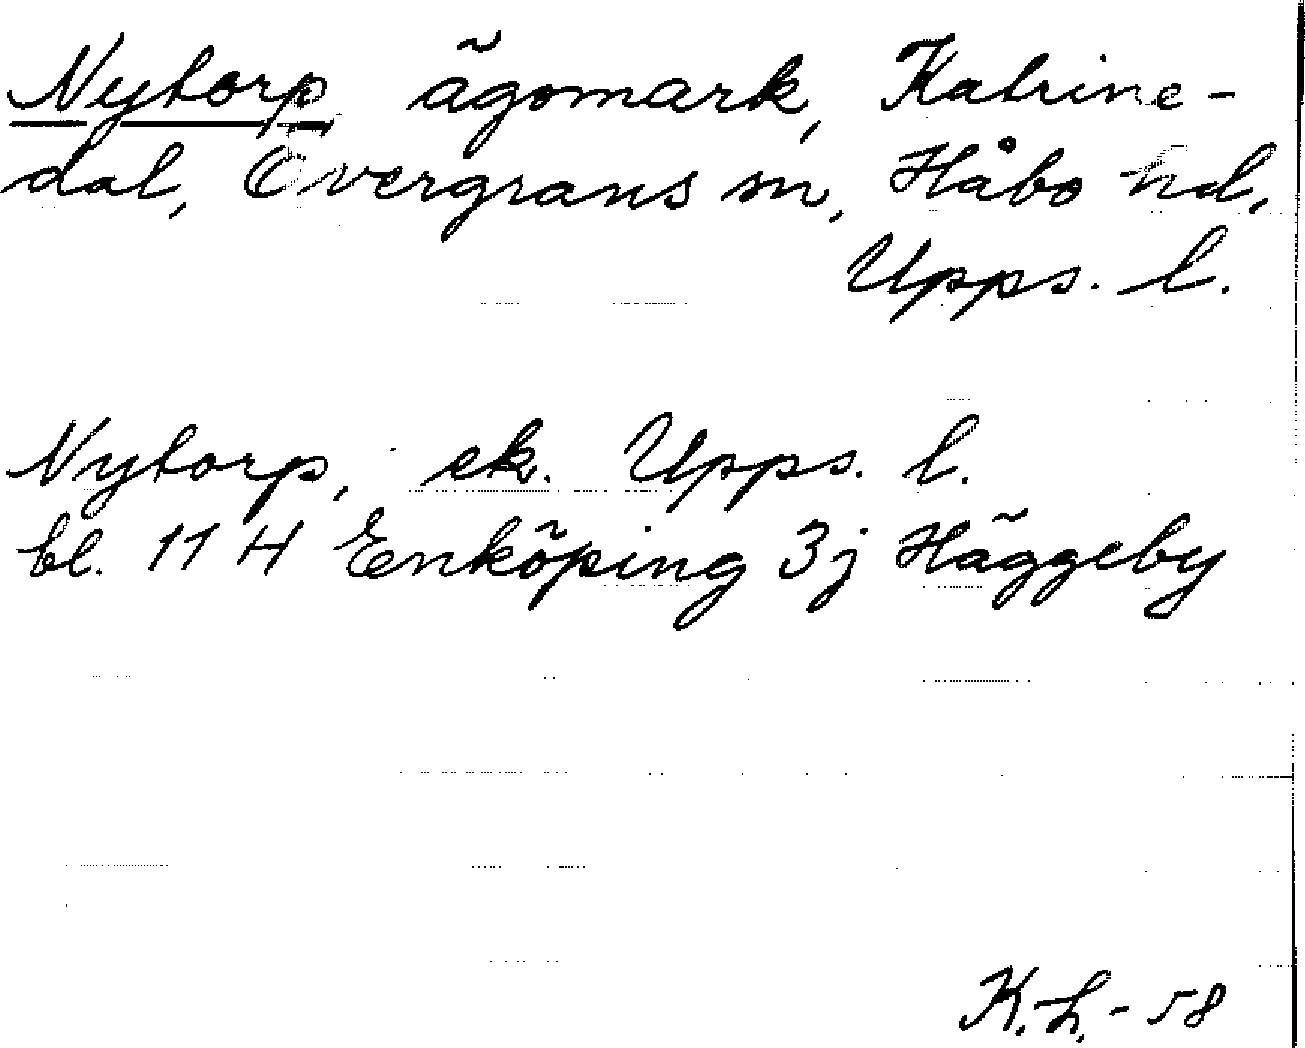 Nytorp ägomark, Katrine-
dal, Övergrans sn, Håbo hd,
Upps. l.
Nytorp, ek. Upps. l.
bl. 11 H Enköping 3j Häggeby
K.L.-58